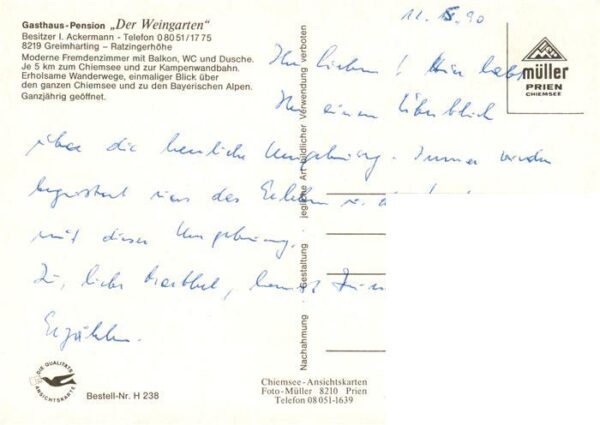 Gasthaus-Pension „Der Weingarten"
Besitzer I. Ackermann - Telefon 0 80 51/17 75
8219 Greimharting - Ratzingerhöhe
Moderne Fremdenzimmer mit Balkon, WC und Dusche.
Je 5 km zum Chiemsee und zur Kampenwandbahn.
Erholsame Wanderwege, einmaliger Blick über
den ganzen Chiemsee und zu den Bayerischen Alpen.
Ganzjährig geöffnet.
90
müller
PRIEN
CHIEMSEE
Ihr Lieben! Hier habt
Ihr einen Überblick
über die herrliche Umgebung. Immer wieder
begeistert uns das Erleben
mit dieser Umgebung.
liebe
Erzählen.
Nachahmung · Gestaltung · jegliche Art bildlicher Verwendung verboten
DIE QUALITÄTS
ANSICHTSKARTE
Bestell-Nr. H 238
Chiemsee-Ansichtskarten
Foto-Müller 8210 Prien
Telefon 08 051-1639